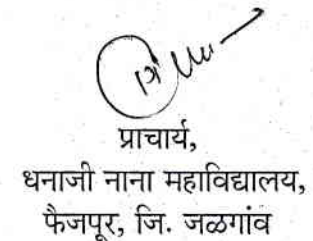 प्राचार्य,
धनाजी नाना महाविद्यालय,
फैजपूर, जि. जळगांव